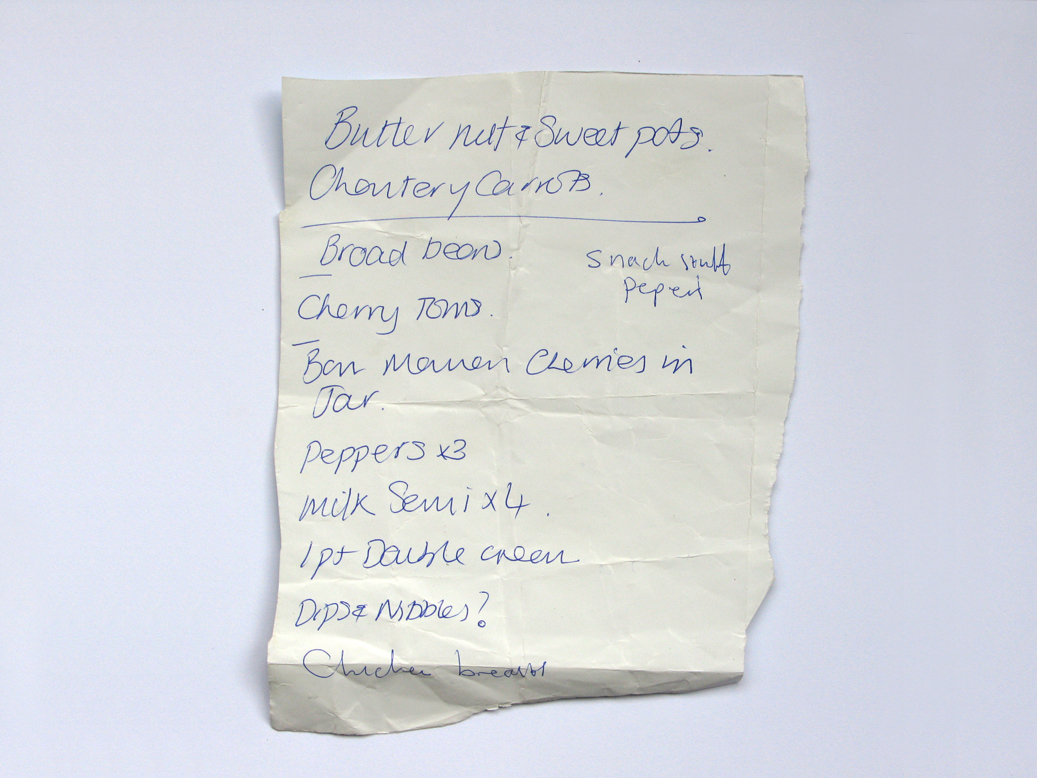 Butter nut & Sweet pots.
Chantery Carrots.
Broad beans.
Snack stuff
Peperi
Cherry Toms.
Bon Maman Cherries in
Jar.
Peppers x3
Milk Semi x 4.
1pt Double cream
Dips & Nibbles?
Chicken breasts